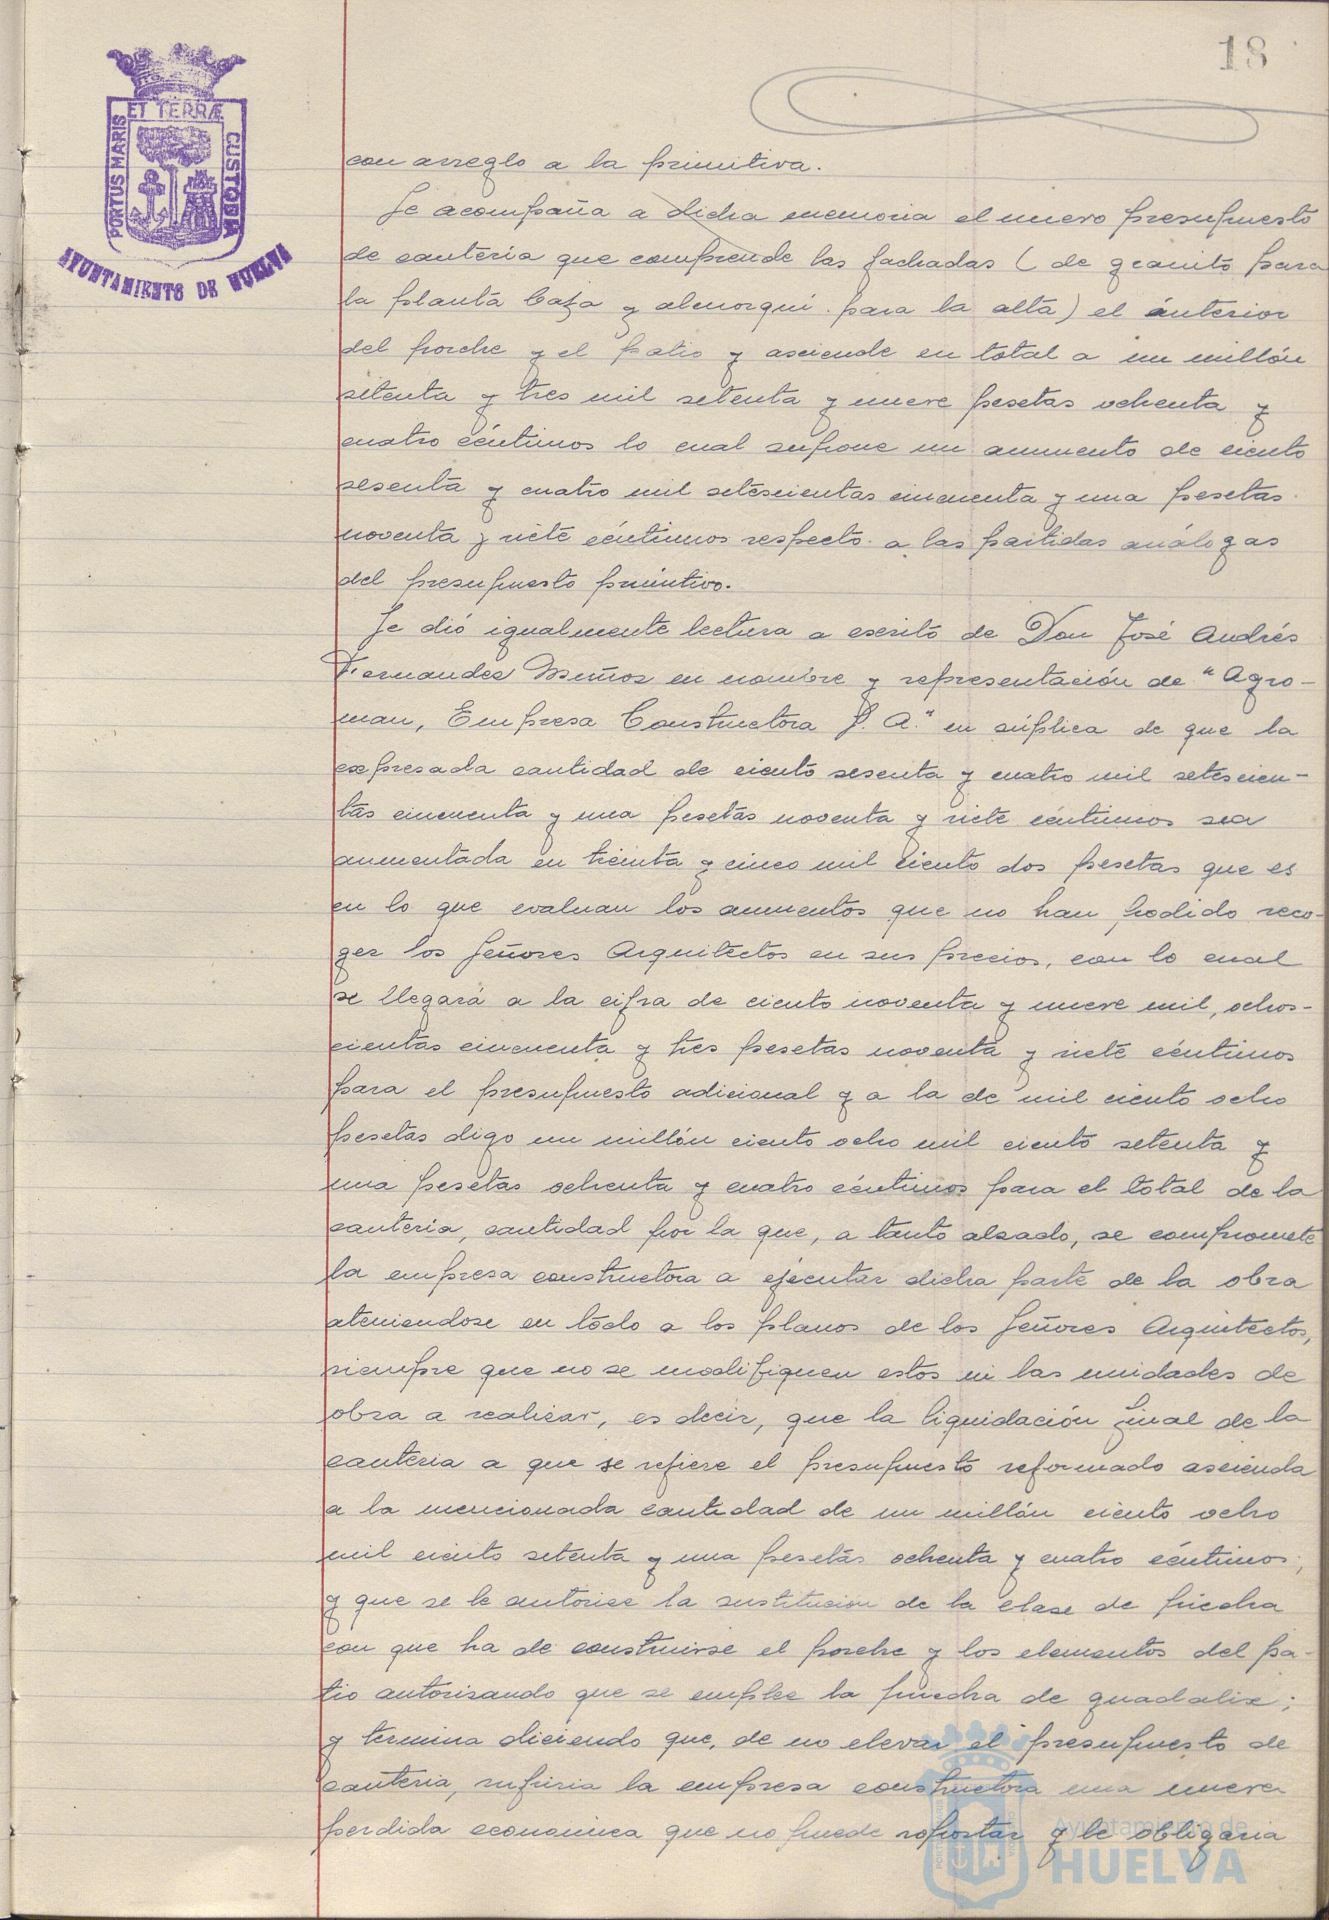 18
PORTUS MARIS ET TERRÆ CUSTODIA
AYUNTAMIENTO DE HUELVA
con arreglo a la primitiva.
Se acompaña a dicha memoria el nuevo presupuesto
de cantería que comprende las fachadas (de granito para
la planta baja y almorquí para la alta) el anterior
del porche y el patio y asciende en total a un millón
setenta y tres mil setenta y nueve pesetas ochenta y
cuatro céntimos lo cual supone un aumento de ciento
sesenta y cuatro mil setescientas cincuenta y una pesetas
noventa y siete céntimos respecto a las partidas análogas
del presupuesto primitivo.
Se dió igualmente lectura a escrito de Don José Andrés
Fernandez Muñoz en nombre y representación de "Agro-
man, Empresa Constructora S. A." en súplica de que la
expresada cantidad de ciento sesenta y cuatro mil setescien-
tas cincuenta y una pesetas noventa y siete céntimos sea
aumentada en treinta y cinco mil ciento dos pesetas que es
en lo que evaluan los aumentos que no han podido reco-
ger los Señores Arquitectos en sus precios, con lo cual
se llegará a la cifra de ciento noventa y nueve mil, ochos-
cientas cincuenta y tres pesetas noventa y siete céntimos
para el presupuesto adicional y a la de mil ciento ocho
pesetas digo un millón ciento ocho mil ciento setenta y
una pesetas ochenta y cuatro céntimos para el total de la
cantería, cantidad por la que, a tanto alzado, se compromete
la empresa constructora a ejecutar dicha parte de la obra
ateniendose en todo a los planos de los Señores Arquitectos,
siempre que no se modifiquen estos ni las unidades de
obra a realizar, es decir, que la liquidación final de la
canteria a que se refiere el presupuesto reformado ascienda
a la mencionada cantidad de un millón ciento ocho
mil ciento setenta y una pesetas ochenta y cuatro céntimos;
y que se le autorice la sustitución de la clase de piedra
con que ha de construirse el porche y los elementos del pa-
tio autorizando que se emplee la piedra de guadalix;
y termina diciendo que, de no elevar el presupuesto de
canteria, sufriria la empresa constructora una nueva
perdida economica que no puede soportar y le obligaria
Ayuntamiento de
HUELVA